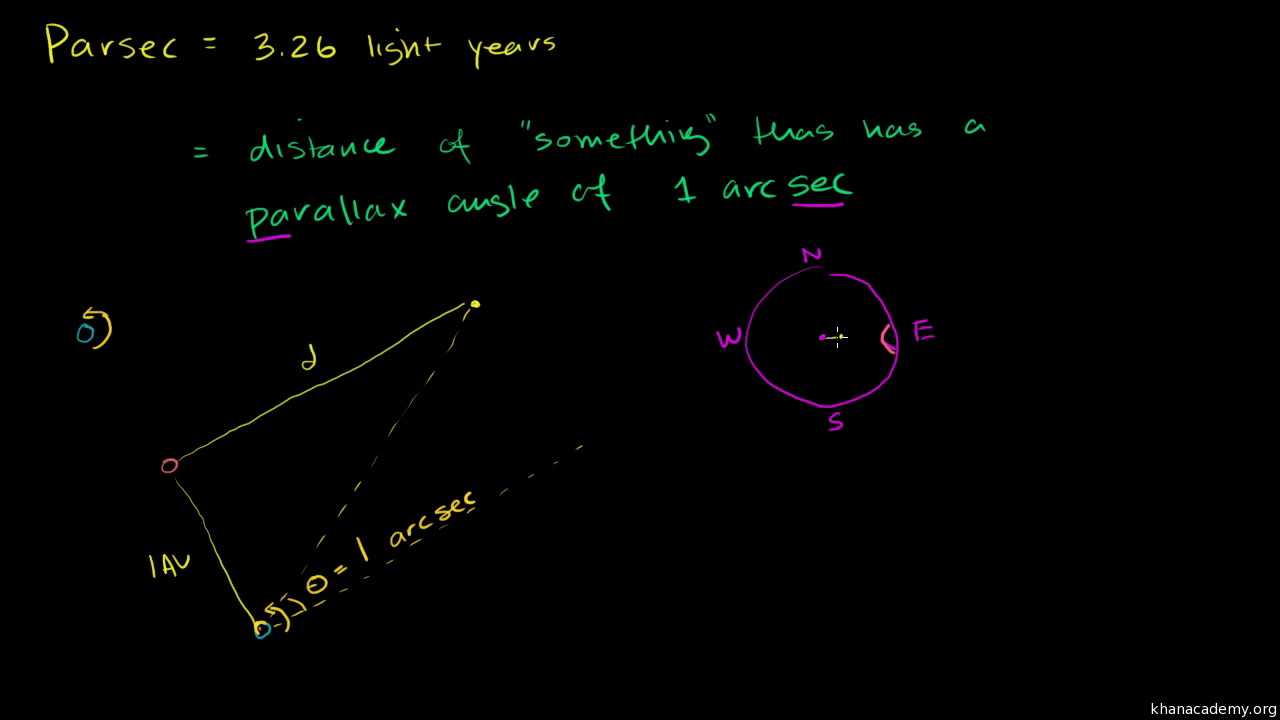 Parsec = 3.26 light years
= distance of "something" thas has a
parallax angle of 1 arc sec
N
W
E
S
d
1AU
θ = 1 arcsec
khanacademy.org